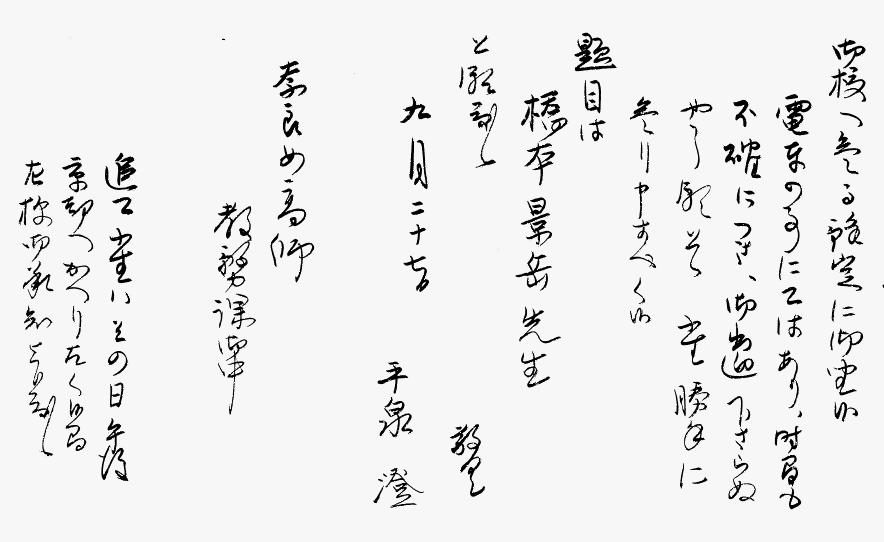 御校へ参る予定に御座候
電車の事にてはあり、時間も
不確につき、御出迎下さらぬ
やう願上候 小生勝手に
参り申すべく候
題目は
橋本景岳先生
と願上候 敬具
九月二十七日
平泉 澄
奈良女高師
教務課御中
追て小生はその日午後
京都へかへりたく候間
左様御承知下され度候